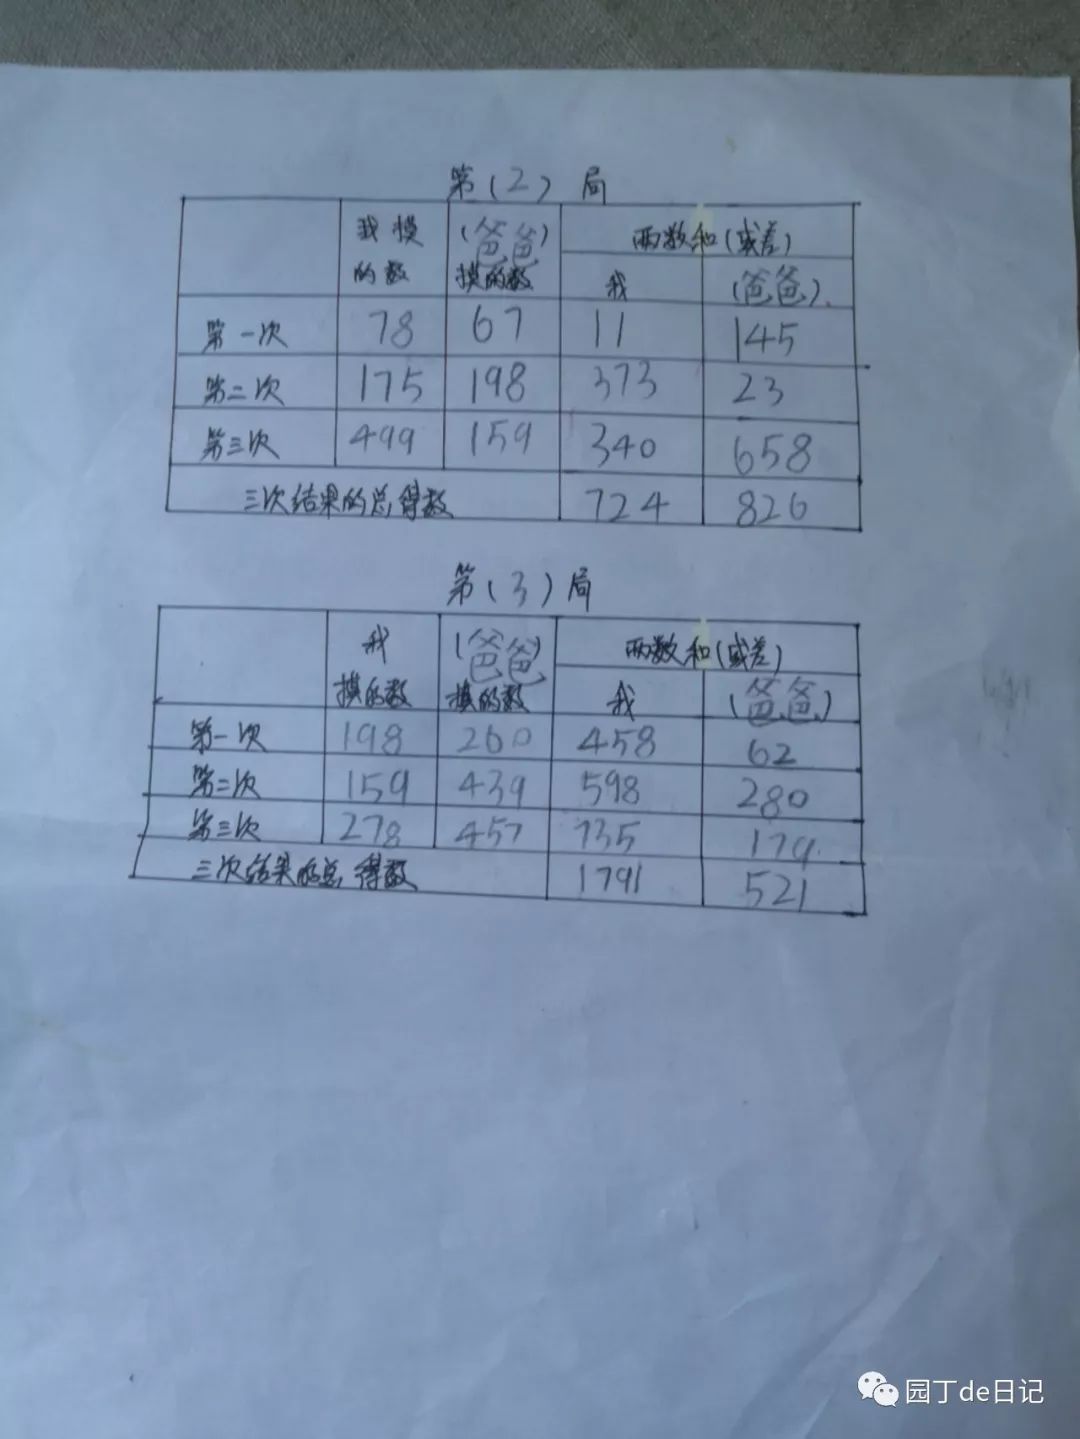 第(2)局
我摸的数 (爸爸)摸的数 两数和(或差)
我 (爸爸)
第一次 78 67 11 145
第二次 175 198 373 23
第三次 499 159 340 658
三次结果的总得数 724 826
第(3)局
我摸的数 (爸爸)摸的数 两数和(或差)
我 (爸爸)
第一次 198 260 458 62
第二次 159 439 598 280
第三次 278 457 735 179
三次结果的总得数 1791 521
园丁de日记